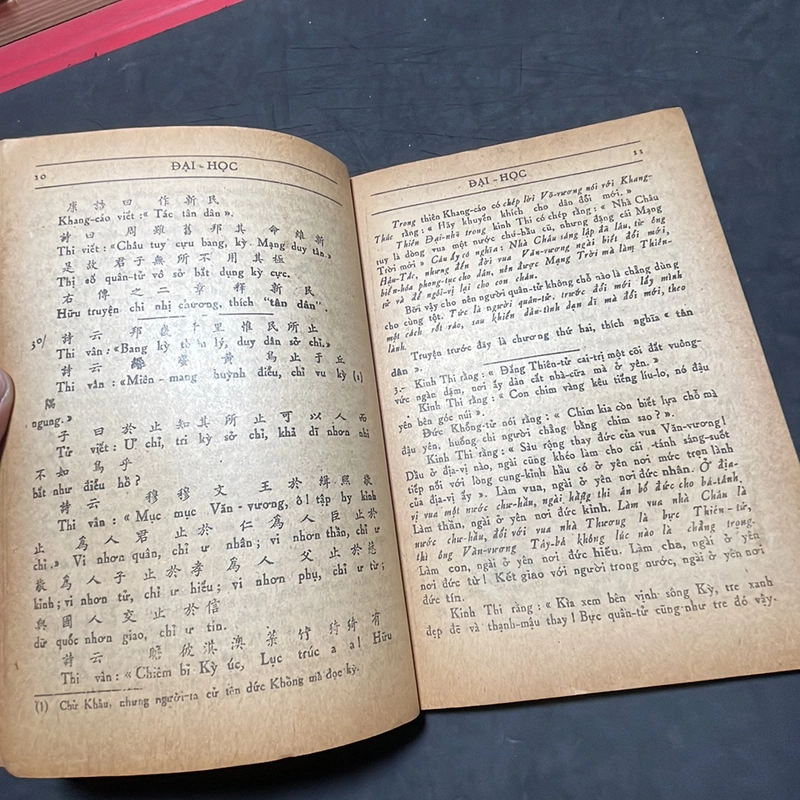 10
ĐẠI-HỌC
康誥曰作新民
Khang-cáo viết: « Tác tân dân ».
詩曰周雖舊邦其命維新
Thi viết: «Châu tuy cựu bang, kỳ Mạng duy tân».
是故君子無所不用其極
Thị cố quân-tử vô sở bất dụng kỳ cực.
右傳之二章釋新民
Hữu truyện chi nhị chương, thích "tân dân".
3o/ 詩云邦畿千里惟民所止
Thi vân: «Bang kỳ thiên lý, duy dân sở chỉ.»
詩云緡蠻黃鳥止于丘
Thi vân: «Miên-mang huỳnh điểu, chỉ vu kỳ (1)
隅
ngung.»
子曰於止知其所止可以人而
Tử viết: Ư chỉ, tri kỳ sở chỉ, khả dĩ nhơn nhi
不如鳥乎
bất như điểu hồ?
詩云穆穆文王於緝熙敬
Thi vân: « Mục mục Văn-vương, ô! tập hy kính
止爲人君止於仁爲人臣止於
chỉ.» Vi nhơn quân, chỉ ư nhân; vi nhơn thần, chỉ ư
敬爲人子止於孝爲人父止於慈
kính; vi nhơn tử, chỉ ư hiếu; vi nhơn phụ, chỉ ư từ;
與國人交止於信
dữ quốc nhơn giao, chỉ ư tín.
詩云瞻彼淇澳菉竹猗猗有
Thi vân: «Chiêm bỉ Kỳ úc, Lục trúc a a! Hữu
(1) Chữ Khâu, nhưng người-ta cử tên đức Khổng mà đọc kỳ.
ĐẠI-HỌC
11
Trong thiên Khang-cáo có chép lời Võ-vương nói với Khang-
Thúc rằng: « Hãy khuyến khích cho dân đổi mới.»
Thiên Đại-nhã trong kinh Thi có chép rằng: « Nhà Châu
tuy là dòng vua một nước chư-hầu cũ, nhưng đặng cái Mạng
Trời mới » Câu ấy có nghĩa: Nhà Châu sáng lập đã lâu, từ ông
Hậu-Tắc, nhưng đến đời vua Văn-vương ngài biết đổi mới,
biến-hóa phong-tục cho dân, nên được Mạng Trời mà làm Thiên-
tử và để ngôi-vị lại cho con cháu.
Bởi vậy cho nên người quân-tử không chỗ nào là chẳng dùng
cho cùng tột. Tức là người quân-tử, trước đổi mới lấy mình
một cách rốt ráo, sau khiến dân-tình dạn dĩ mà đổi mới, theo
lành.
Truyện trước đây là chương thứ hai, thích nghĩa « tân
dân ».
3.- Kinh Thi rằng: « Đấng Thiên-tử cai-trị một cõi đất vuông-
vức ngàn dặm, nơi ấy dân cất nhà-cửa mà ở yên.»
Kinh Thi rằng: « Con chim vàng kêu tiếng líu-lo, nó đậu
yên bên góc núi ».
Đức Khổng-tử nói rằng: « Chim kia còn biết lựa chỗ mà
đậu yên, huống chi người chẳng bằng chim sao? ».
Kinh Thi rằng: « Sâu rộng thay đức của vua Văn-vương!
Dầu ở địa-vị nào, ngài cũng khéo làm cho cái -tánh sáng-suốt
tiếp nối với lòng cung-kính hầu có ở yên nơi mức trọn lành
của địa-vị ấy ». Làm vua, ngài ở yên nơi đức nhân. Ở địa-
vị vua một nước chư-hầu, ngài hằng thi ân bố đức cho bá-tánh.
Làm thần, ngài ở yên nơi đức kính. Làm vua nhà Châu là
nước chư-hầu, đối với vua nhà Thương là bực Thiên-tử,
thì ông Văn-vương Tây-bá không lúc nào là chẳng trọng-
Làm con, ngài ở yên nơi đức hiếu. Làm cha, ngài ở yên
nơi đức từ! Kết giao với người trong nước, ngài ở yên nơi
đức tín.
Kinh Thi rằng: « Kìa xem bên vịnh sông Kỳ, tre xanh
đẹp đẽ và thạnh-mậu thay! Bực quân-tử cũng như tre đó vậy.